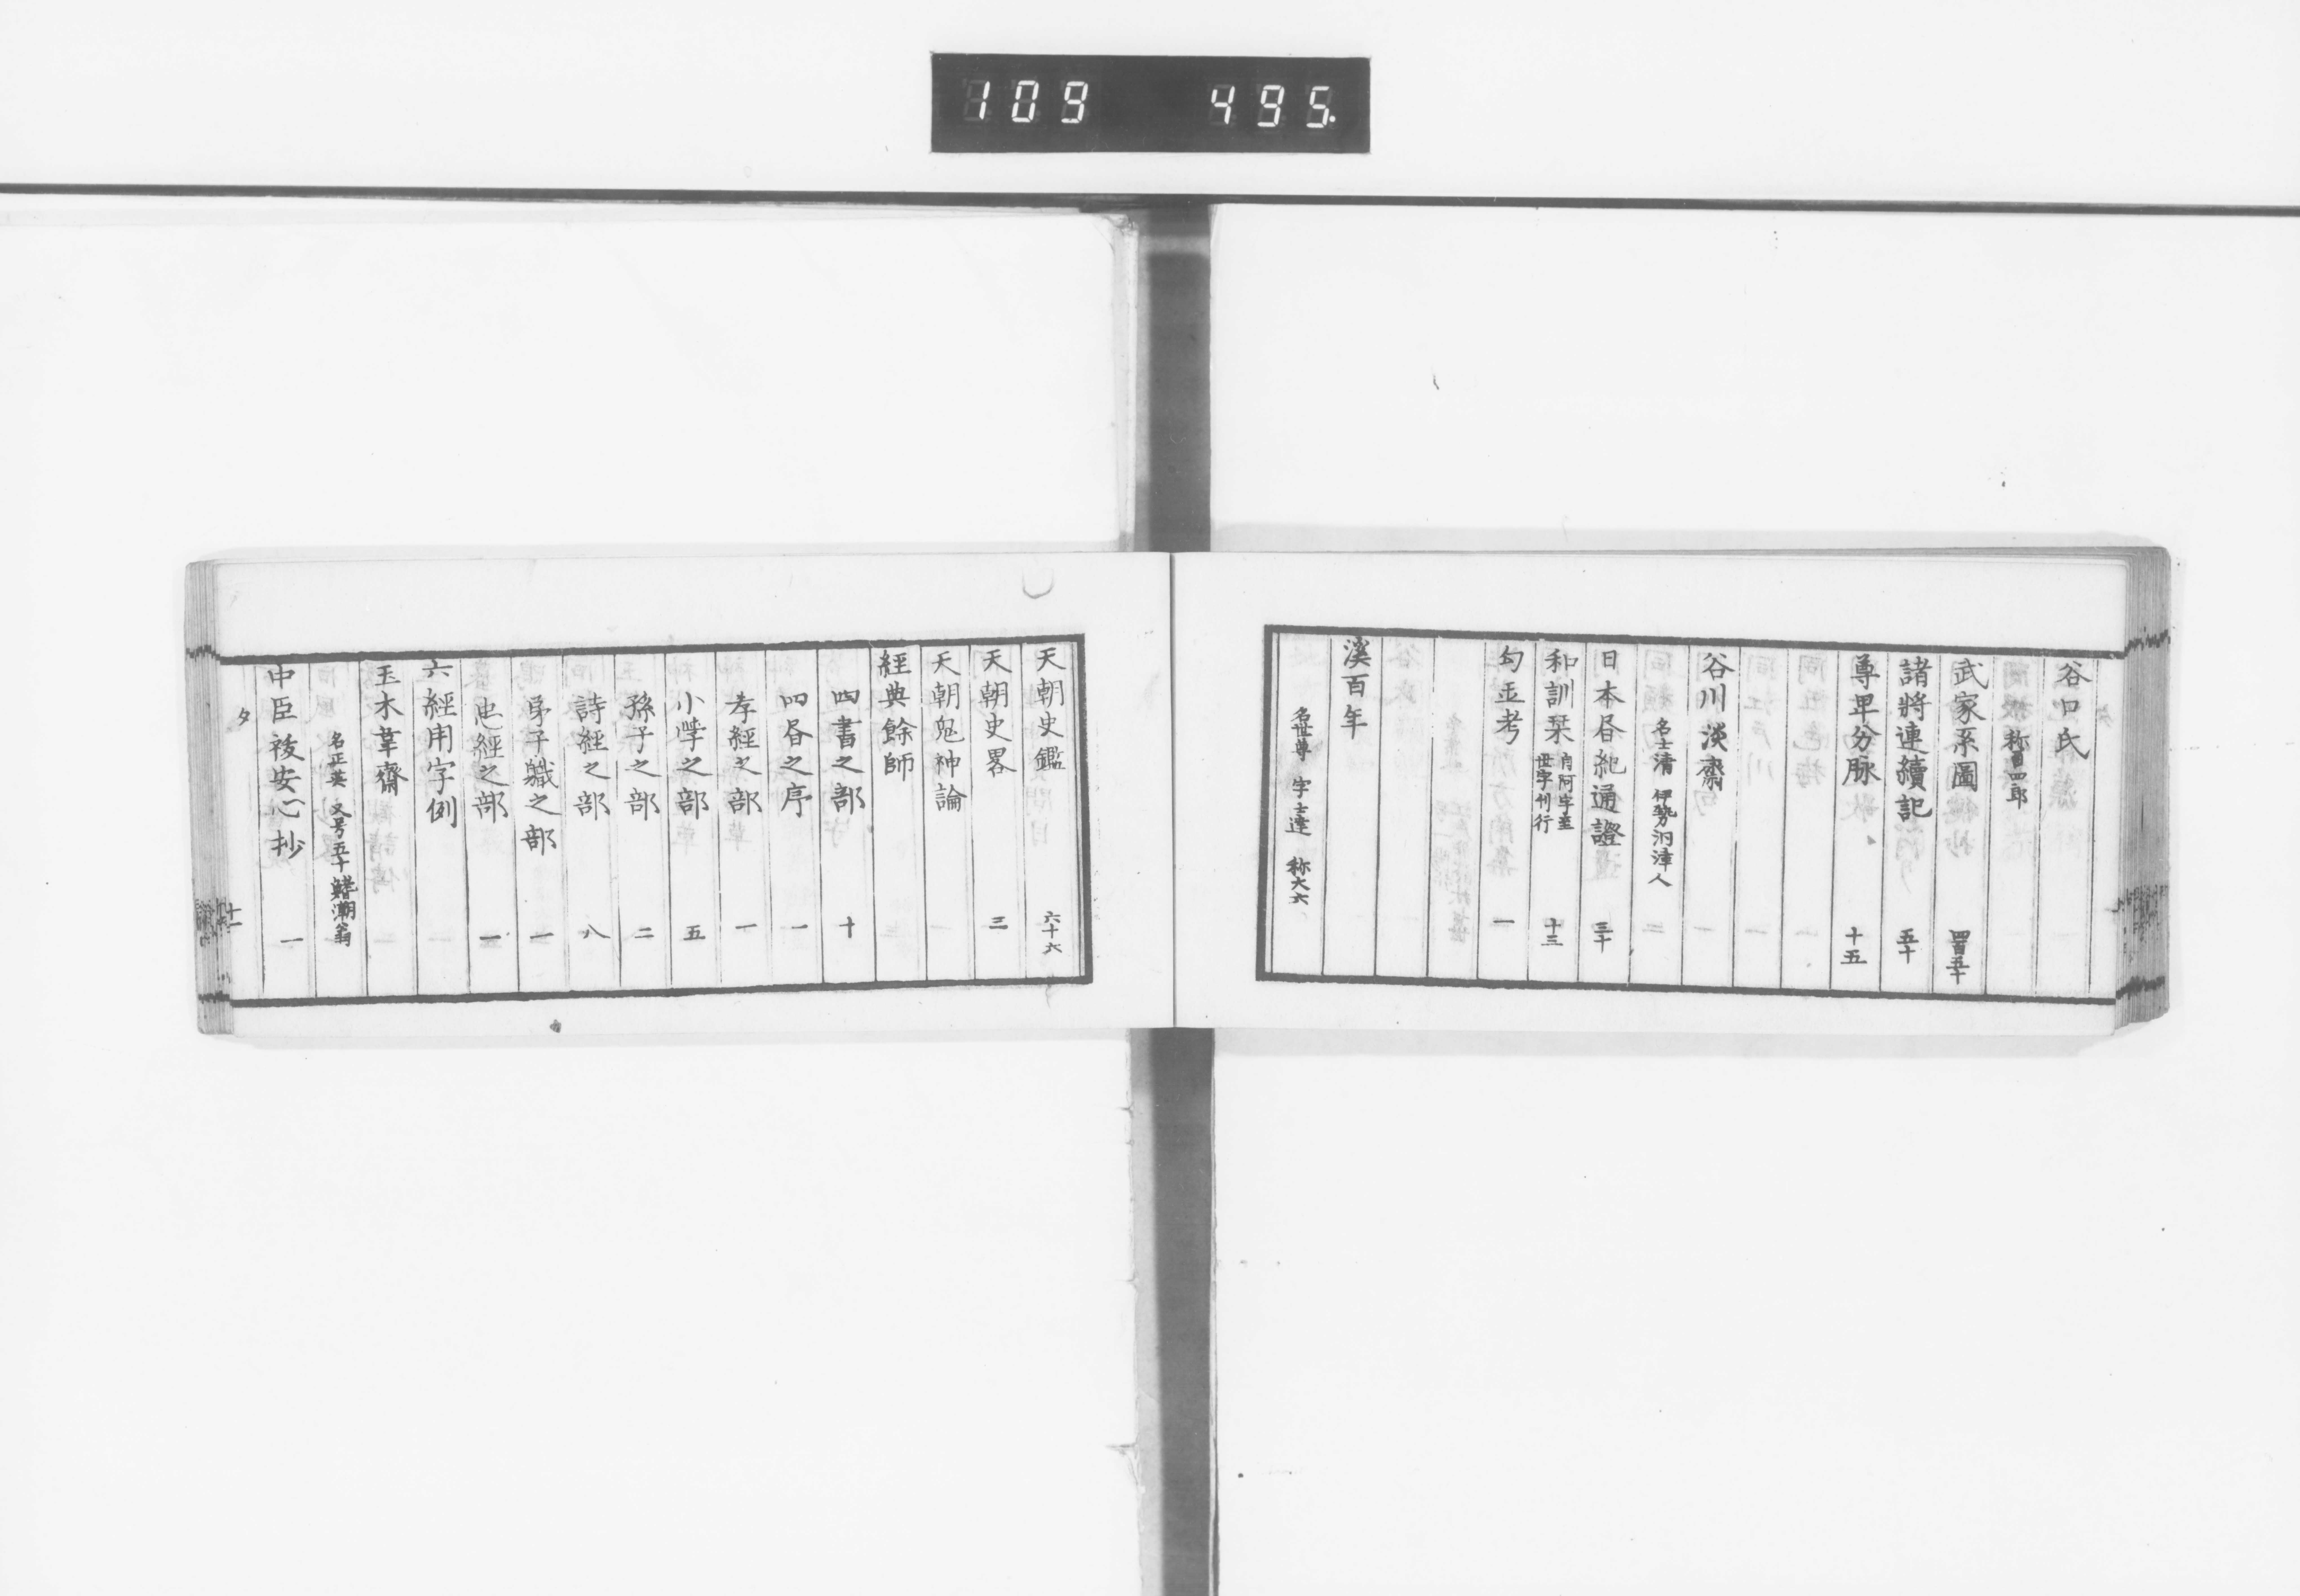 109 495.
谷口氏
称四郎
武家系圖 四百五十
諸將連續記 五十
尊卑分脉 十五
谷川淡齋
名士清 伊勢洞津人
日本昏紀通證 三十
和訓栞 自阿字至世字刊行 十三
勾玉考 一
溪百年
名世尊 字士達 称大六
天朝史鑑 六十六
天朝史畧 三
天朝鬼神論
經典餘師
四書之部 十
四昏之序 一
孝經之部 一
小學之部 五
孫子之部 二
詩經之部 八
弟子職之部 一
忠經之部 一
六經用字例
玉木葦齋
名正英 又号五十鰭潮翁
中臣祓安心抄 一
タ 十一